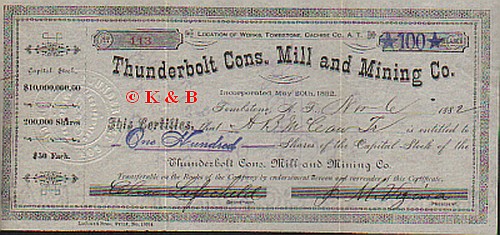 No. 113
Location of Works, Tombstone, Cachise Co. A. T.
100
Shares
Thunderbolt Cons. Mill and Mining Co.
Incorporated May 20th, 1882.
Capital Stock
$10,000,000.00
200,000 Shares
$50 Each.
© K & B
Tombstone, A. T. Nov 6 1882
This Certifies, that A B McCaw Tr is entitled to
One Hundred Shares of the Capital Stock of the
Thunderbolt Cons. Mill and Mining Co.
Transferable on the Books of the Company by endorsement hereon and surrender of this Certificate.
Secretary.
President.